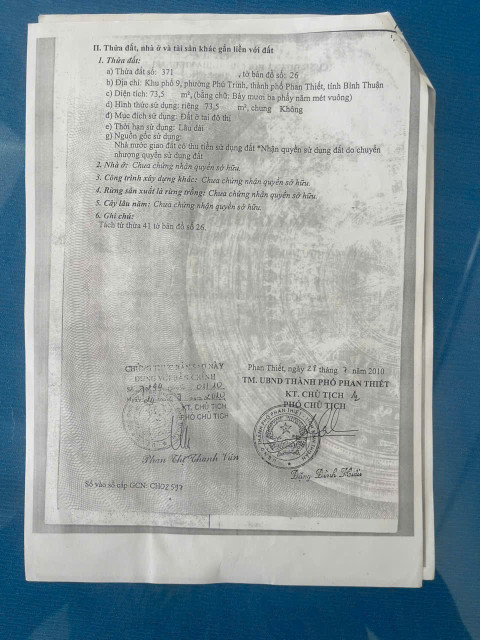 II. Thửa đất, nhà ở và tài sản khác gắn liền với đất
1. Thửa đất:
a) Thửa đất số: 371 , tờ bản đồ số: 26
b) Địa chỉ: Khu phố 9, phường Phú Trinh, thành phố Phan Thiết, tỉnh Bình Thuận
c) Diện tích: 73,5 m², (bằng chữ: Bảy mươi ba phẩy năm mét vuông)
d) Hình thức sử dụng: riêng 73,5 m², chung Không
đ) Mục đích sử dụng: Đất ở tại đô thị
e) Thời hạn sử dụng: Lâu dài
g) Nguồn gốc sử dụng:
Nhà nước giao đất có thu tiền sử dụng đất *Nhận quyền sử dụng đất do chuyển
nhượng quyền sử dụng đất
2. Nhà ở: Chưa chứng nhận quyền sở hữu.
3. Công trình xây dựng khác: Chưa chứng nhận quyền sở hữu.
4. Rừng sản xuất là rừng trồng: Chưa chứng nhận quyền sở hữu.
5. Cây lâu năm: Chưa chứng nhận quyền sở hữu.
6. Ghi chú:
Tách từ thửa 41 tờ bản đồ số 26.
CHỨNG THỰC BẢN SAO NÀY
ĐÚNG VỚI BẢN CHÍNH
PHÓ CHỦ TỊCH
Phan Thị Thanh Vân
Phan Thiết, ngày tháng 7 năm 2010
TM. UBND THÀNH PHỐ PHAN THIẾT
KT. CHỦ TỊCH
PHÓ CHỦ TỊCH
Đặng Đình Hiếu
Số vào sổ cấp GCN: CH02597